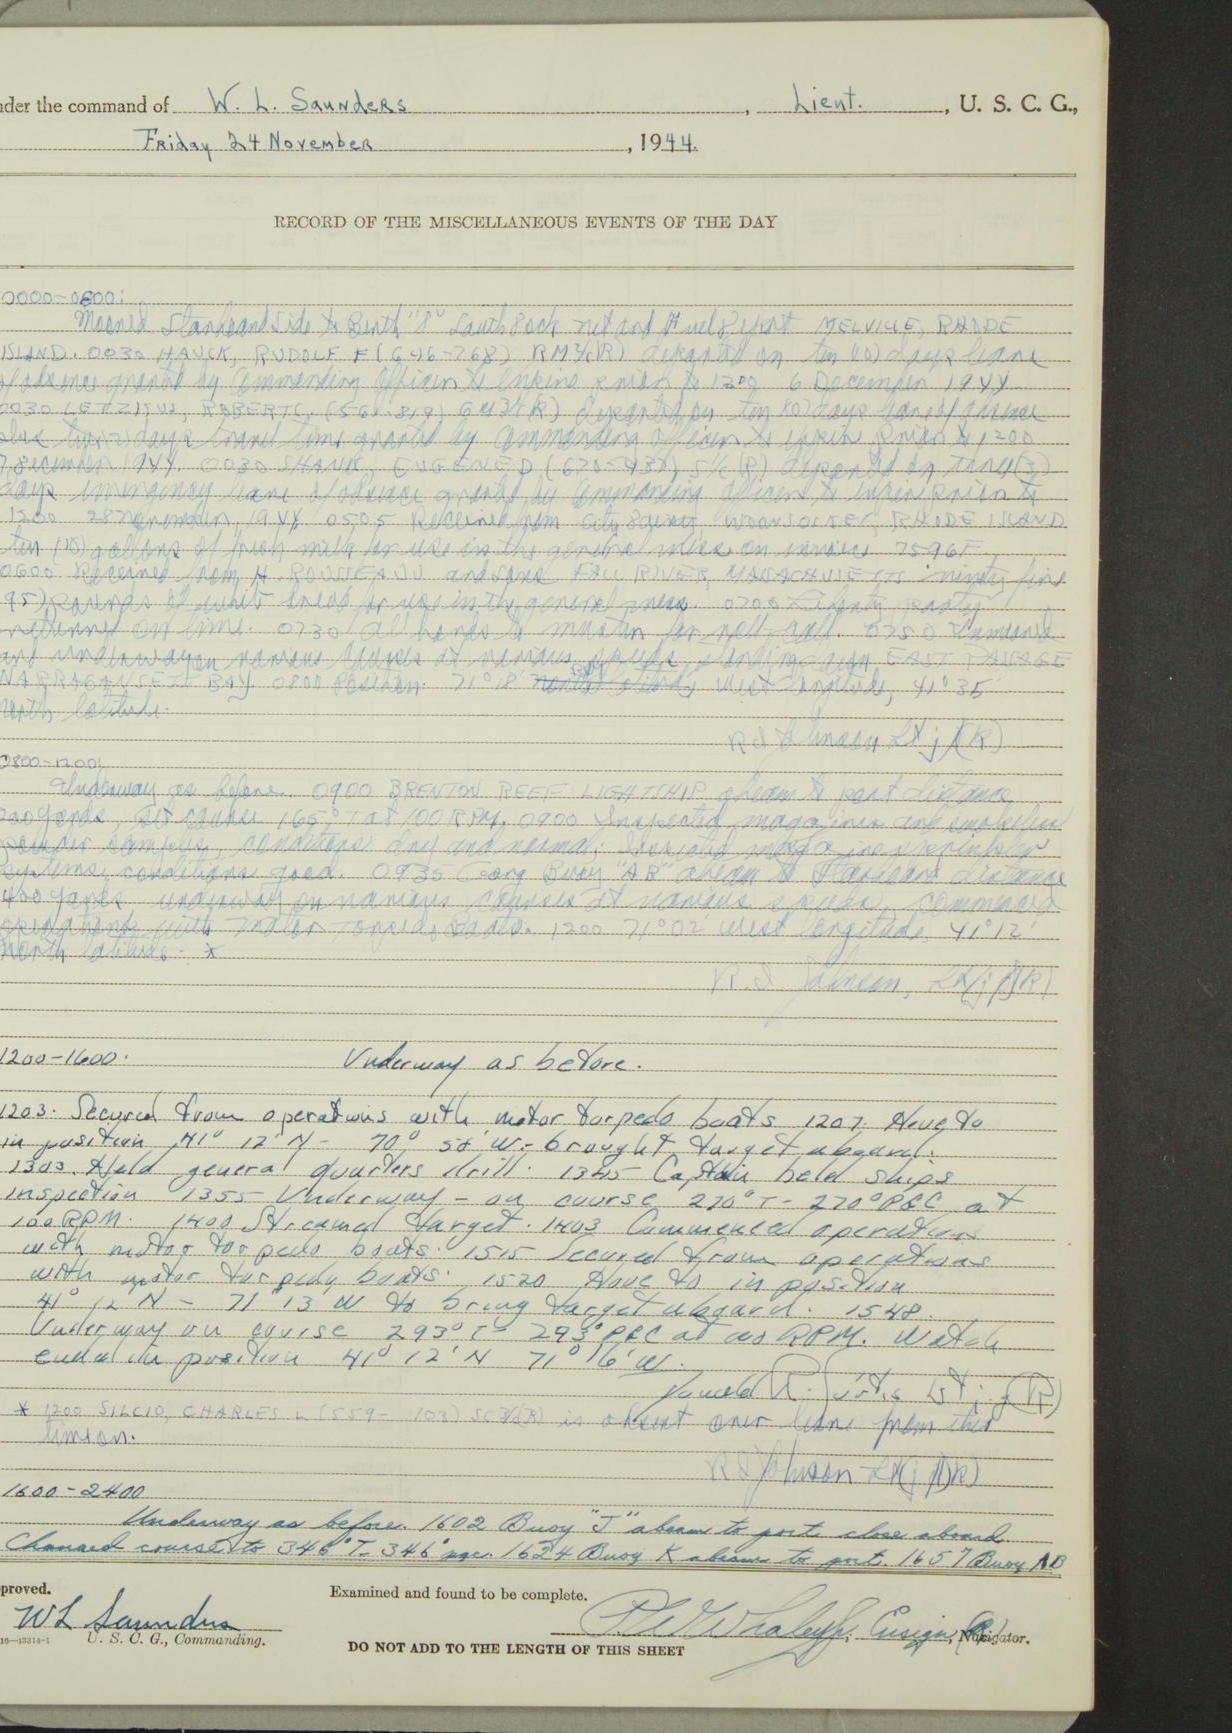 nder the command of W. L. Saunders, Lieut., U. S. C. G.,
Friday 24 November, 1944.
RECORD OF THE MISCELLANEOUS EVENTS OF THE DAY
0000-0600:
Moored Starboard Side to Berth South Dock Net and Fuel Depot MELVILLE, RHODE
ISLAND. 0030 HAUCK, RUDOLF F (646-768) RM3/c(R) departed on ten (10) days leave
of absence granted by Commanding Officer to expire prior to 1200 6 December 1944.
0030 departed on ten (10) days leave of absence
plus two (2) days travel time granted by Commanding Officer to expire prior to 1200
7 December 1944. 0030 SHAUK, EUGENE D S1/c(R) departed on three (3)
days emergency leave of absence granted by Commanding Officer to expire prior to
1200 28 November, 1944. 0505 Received from City Dairy, WOONSOCKET, RHODE ISLAND
ten (10) gallons of fresh milk for use in the general mess on invoice 7596F.
0600 Received from H. ROUSSEAU and sons FALL RIVER, MASSACHUSETTS ninety five
95) pounds of white bread for use in the general mess. 0700 Liberty party
returned on time. 0730 All hands to muster for roll-call. 0750 Unmoored
and underway on various courses at various speeds, standing down EAST PASSAGE
NARRAGANSETT BAY 0800 Position: 71°18' West longitude, 41°35'
north latitude.
R S Johnson Lt(jg)(R)
0800-1200:
Underway as before. 0900 BRENTON REEF LIGHTSHIP abeam to port distance
200 yards, set course 165°T at 100 RPM, 0900 Inspected magazines and smokeless
powder samples, conditions dry and normal; Inspected magazine sprinkler
systems, conditions good. 0935 Gong Buoy "AB" abeam to starboard distance
400 yards underway on various courses at various speeds, commenced
operations with Motor Torpedo Boats. 1200 71°02' West longitude, 41°12'
North latitude. *
R. S. Johnson, Lt(jg)(R)
1200-1600. Underway as before.
1203. Secured from operations with motor torpedo boats 1207. Hove to
in position 41° 12' N - 70° 58' W - brought target aboard.
1303. Held general quarters drill. 1345 Captain held ships
inspection 1355 Underway - on course 270°T - 270°PGC at
100 RPM. 1400 Streamed target. 1403 Commenced operations
with motor torpedo boats. 1515 Secured from operations
with motor torpedo boats. 1520 Hove to in position
41° 12 N - 71° 13 W to bring target aboard. 1548.
Underway on course 293°T - 293°PGC at RPM. Watch
ended in position 41° 12' N 71° 16' W.
Donald R. Lt. jg (R)
* 1200 SILCIO, CHARLES L (559-103) SC3/c(R) is absent over leave from this
time on.
R S Johnson Lt(jg)(R)
1600-2400
Underway as before. 1602 Buoy "J" abeam to port close aboard.
Changed course to 346°T - 346° pgc. 1624 Buoy K abeam to port. 1657 Buoy AB
proved.
W L Saunders
16—13314-1 U. S. C. G., Commanding.
Examined and found to be complete.
Ensign (R), Navigator.
DO NOT ADD TO THE LENGTH OF THIS SHEET